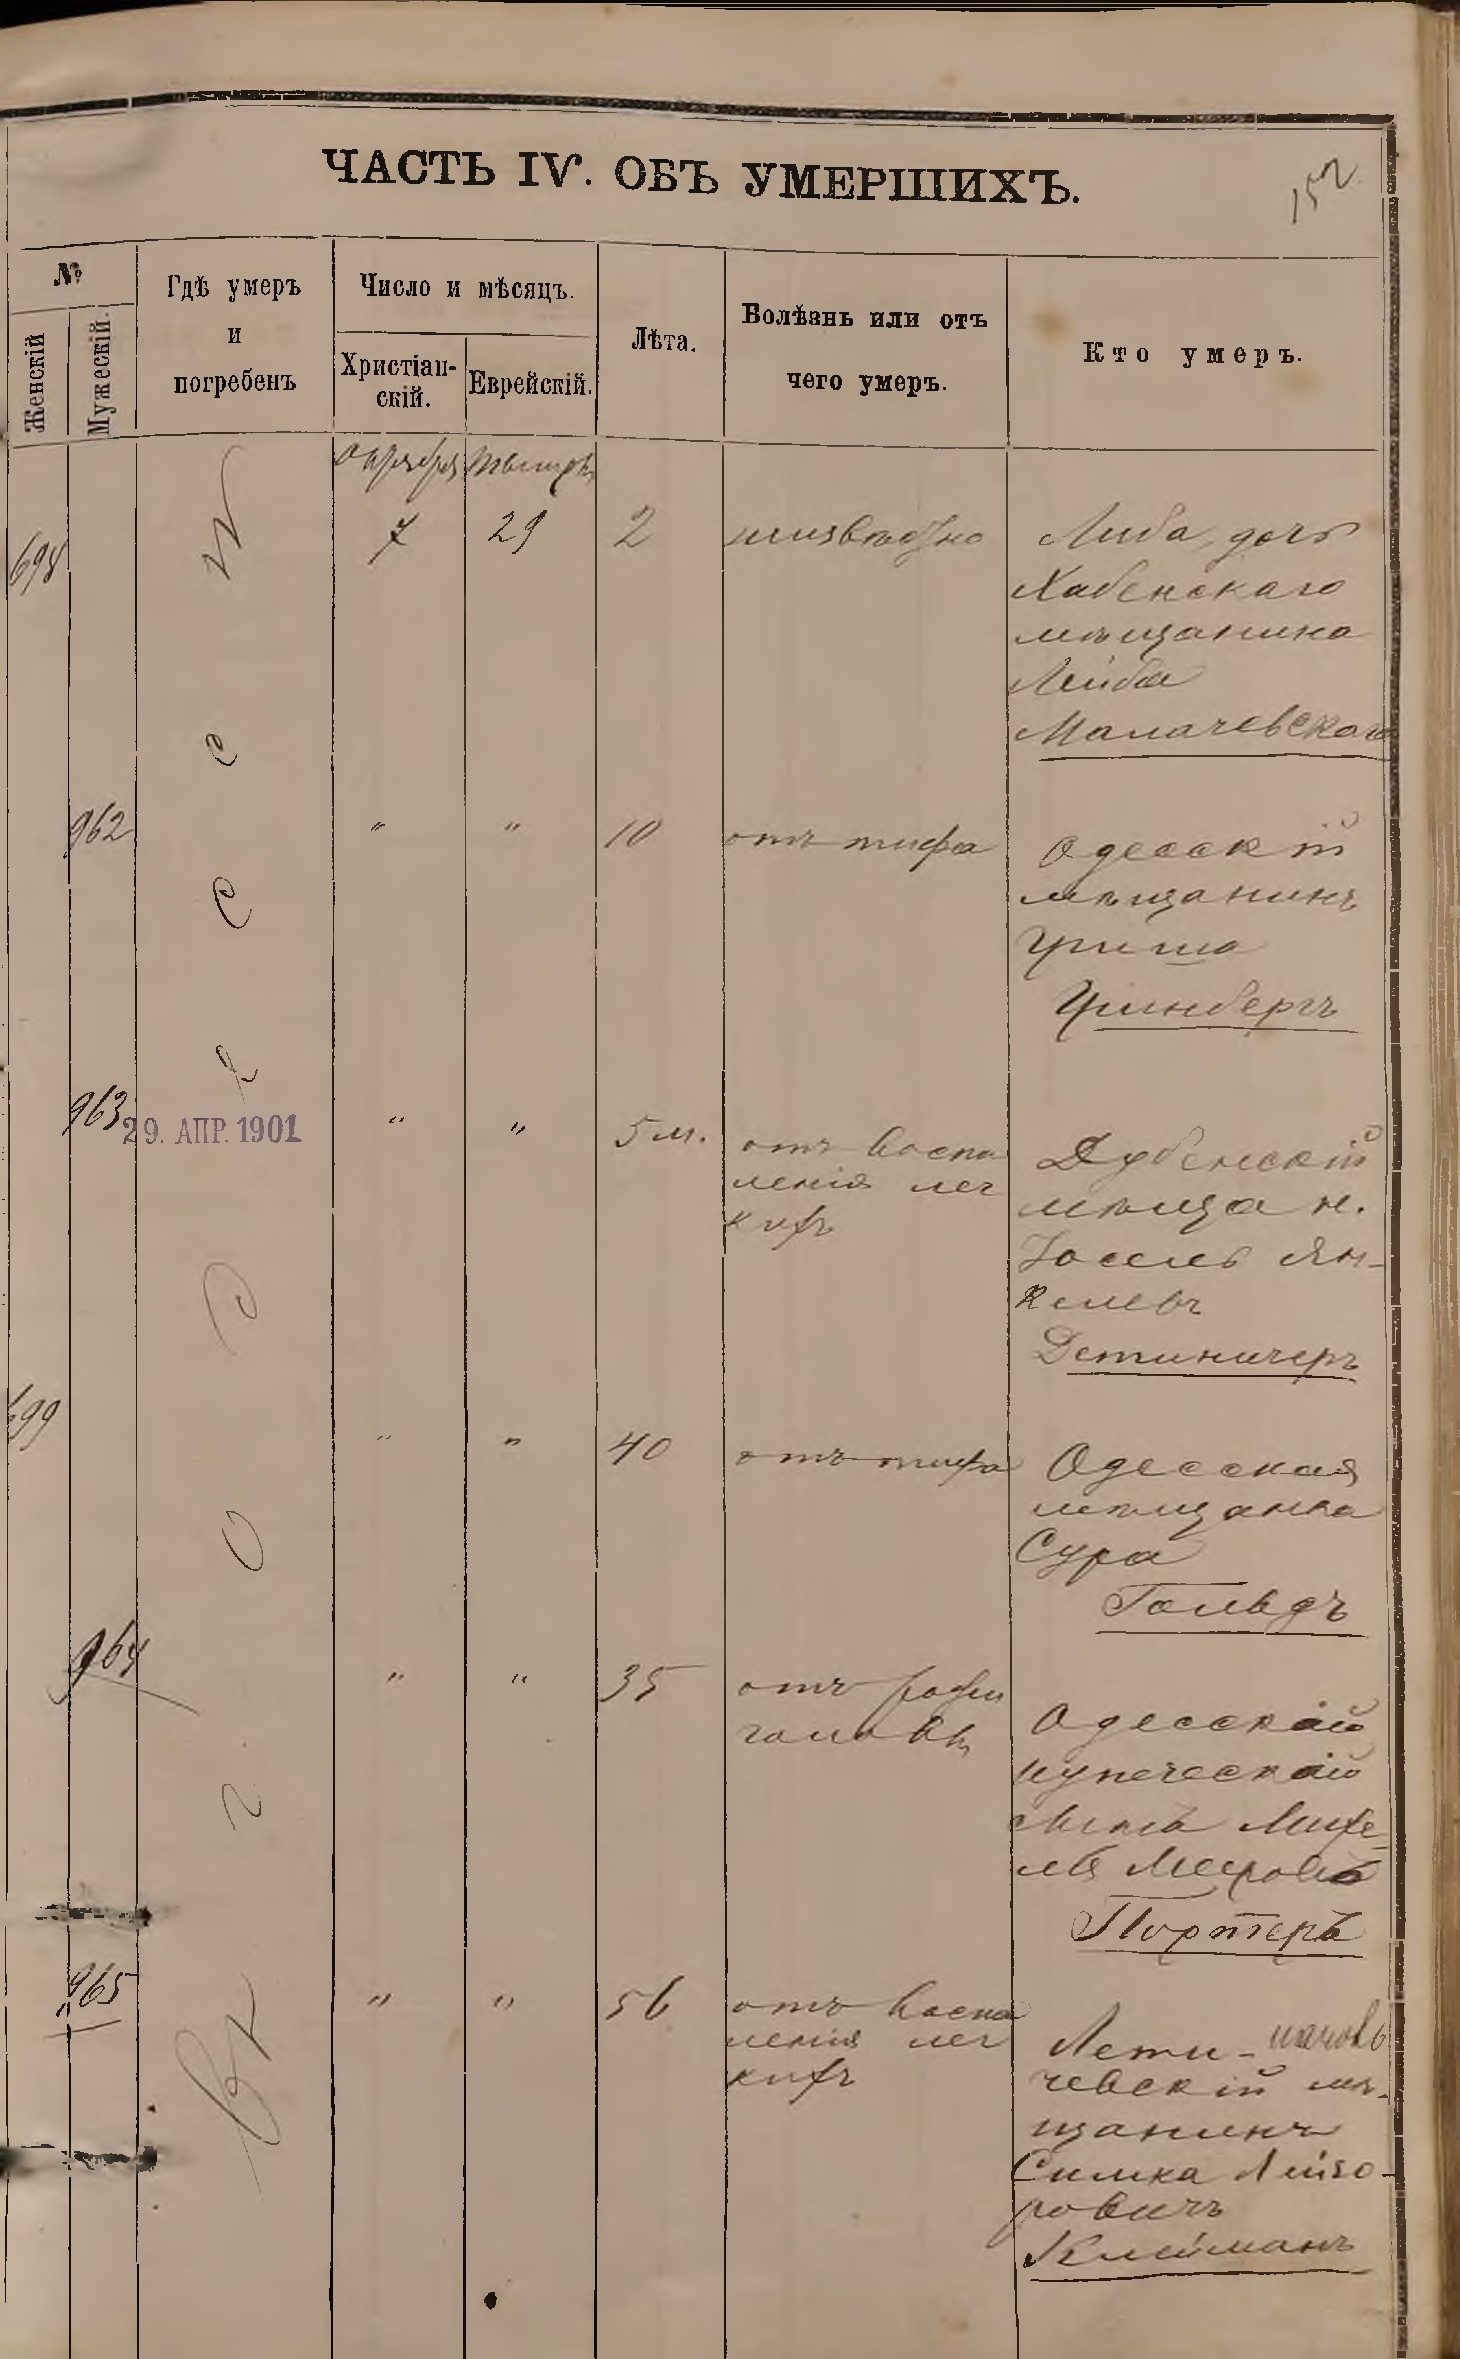 ЧАСТЬ IV. ОБЪ УМЕРШИХЪ.
152
№
Женскій
Мужескій.
Гдѣ умеръ
и
погребенъ
Число и мѣсяцъ.
Христіан-
скій.
Еврейскій.
Лѣта.
Болѣзнь или отъ
чего умеръ.
Кто умеръ.
Въ г. Одессѣ
октября
698
7
29
2
неизвѣстно
Либа, дочь
Хабенскаго
мѣщанина
Лейба
Малачевскаго
962
"
"
10
отъ тифа
Одесскій
мѣщанинъ
Гриша
Гринбергъ
963
29. АПР. 1901
"
"
5 м.
отъ воспа
ленія лег
кихъ
Дубенскій
мѣщан.
Іосель Ян-
келевъ
Детиничеръ
699
"
"
40
отъ тифа
Одесская
мѣщанка
Сура
Гольдъ
964
"
"
35
отъ
головы
Одесскій
купеческій
Михе-
ль Меировъ
Портеръ
965
"
"
56
отъ воспа
ленія лег
кихъ
Лети-
чевскій мѣ-
щанинъ
Симха Лейзо-
ровичъ
Клейманъ